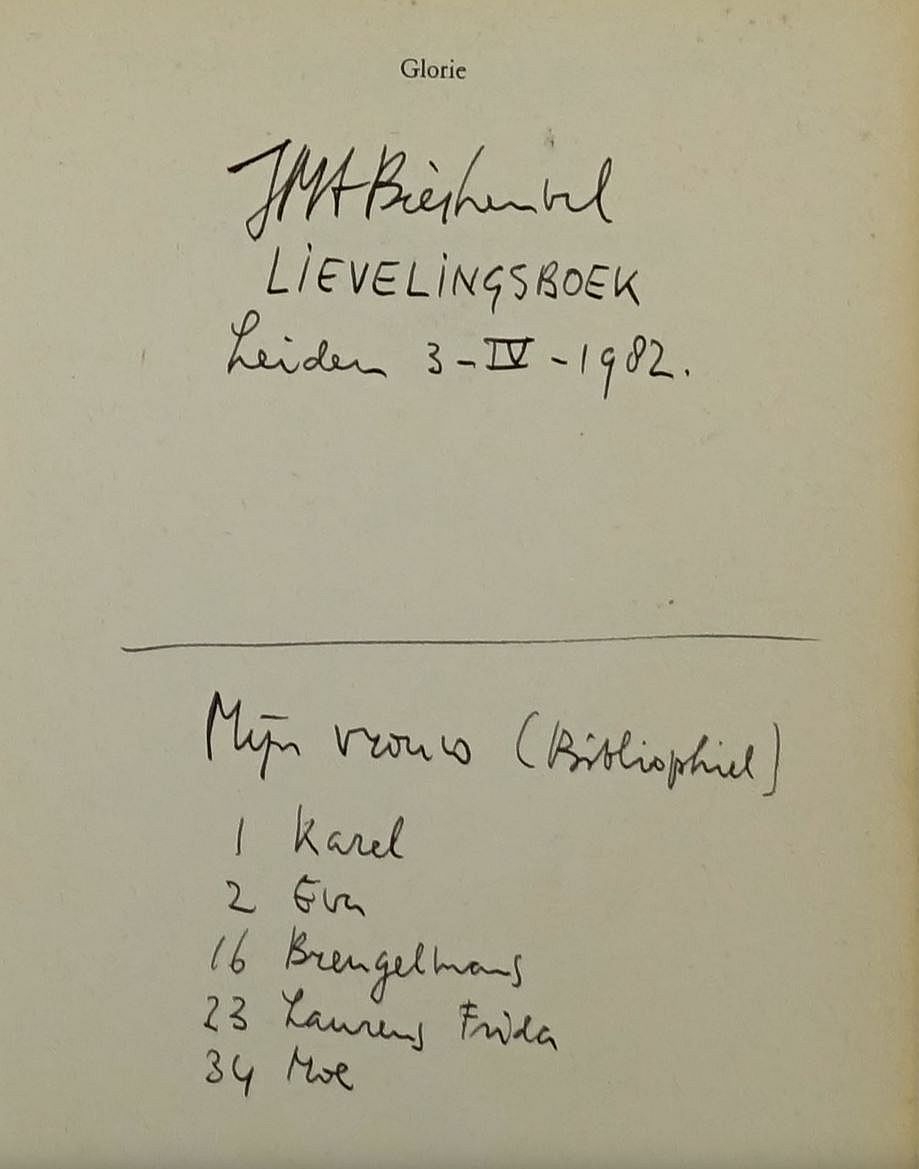 Glorie
JMA Biesheuvel
LIEVELINGSBOEK
Leiden 3-IV-1982.
Mijn vrouw (Bibliophiel)
1 Karel
2 Eva
16 Brengelmans
23 Laurens Frida
34 Moe